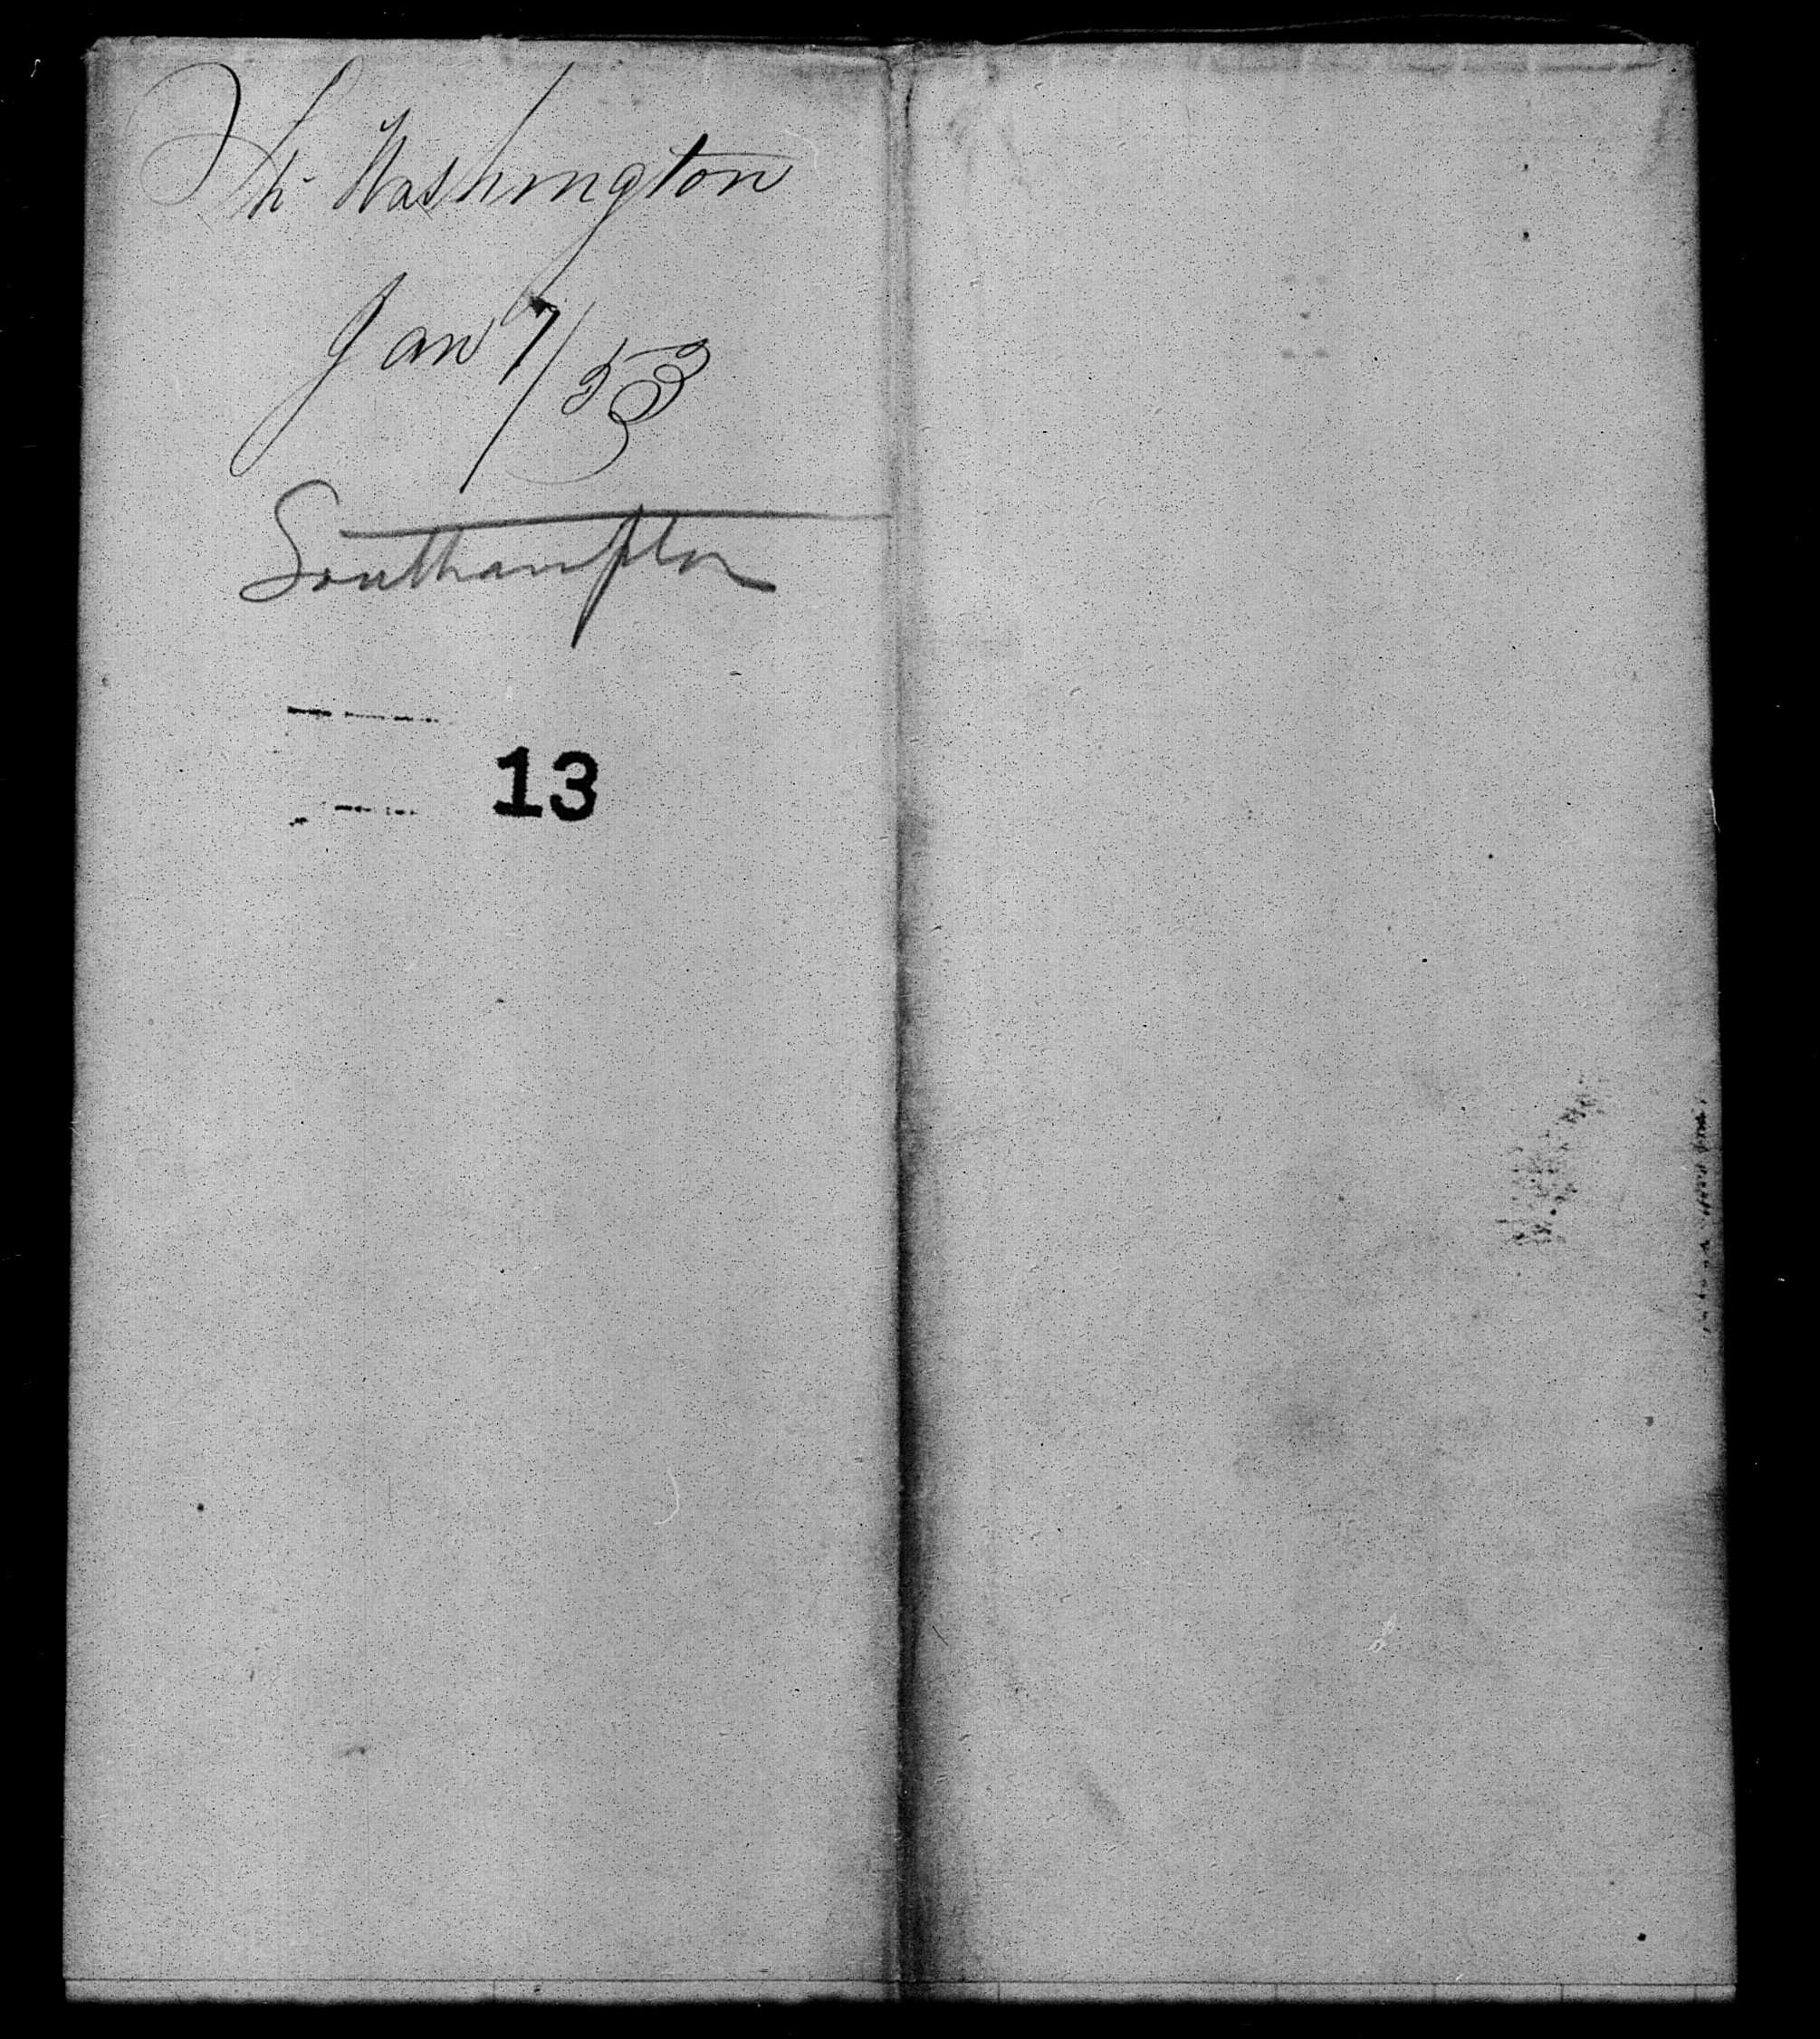 Sh. Washington
Jan 7/53
Southampton
13